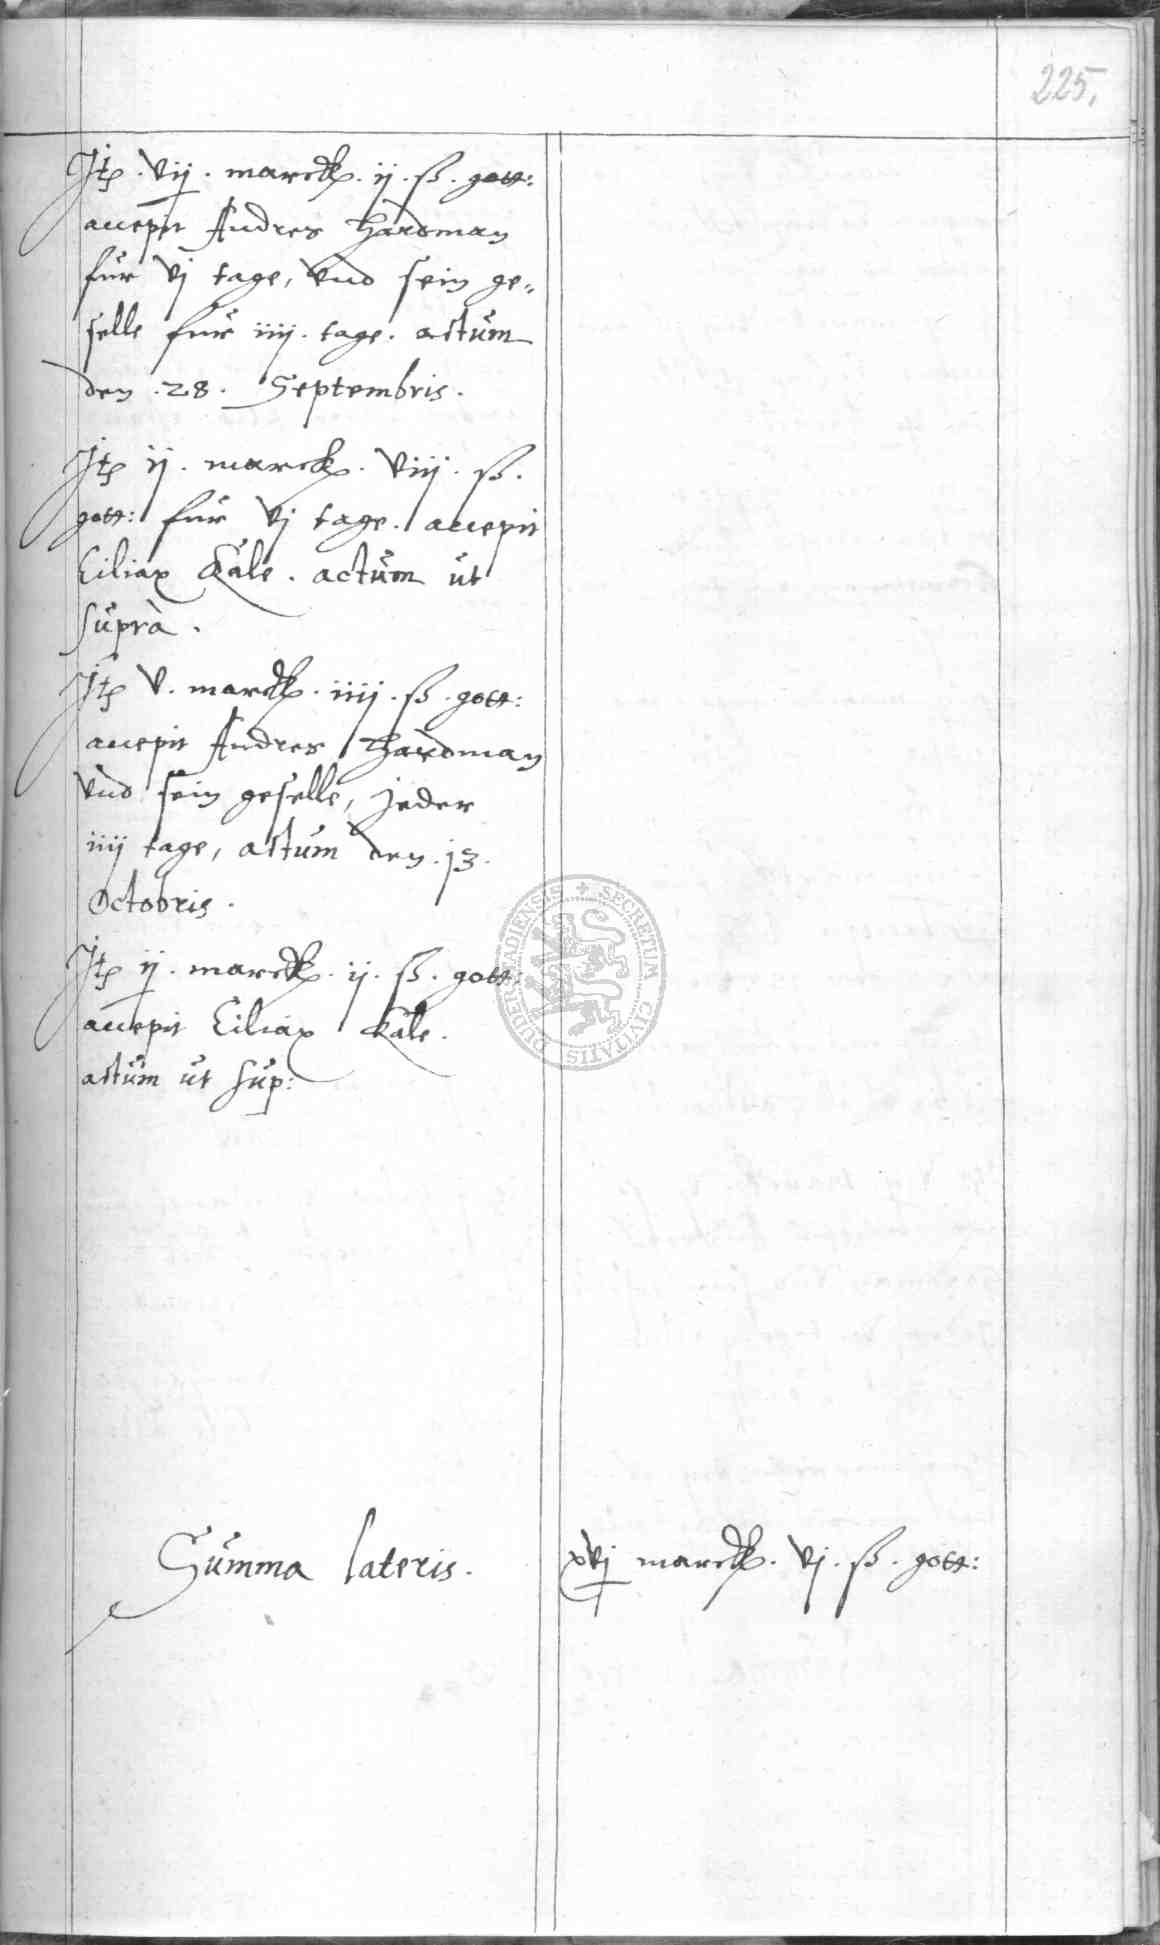 225.
Jtem. vij. marck. ij. ß. gott:
accepit Andres Hardman
für vj tage, vnd sein ge„
selle für iiij. tage. actum
den .28. Septembris.
Jtem ij. marck. viij. ß.
gott: für vj tage. accepit
Ciliax Kale. actum ut
suprà.
Jtem v. marck. iiij. ß. gott:
accepit Andres Hardman
vnd sein geselle, jeder
iiij tage, actum den .13.
Octobris.
Jtem ij. marck. ij. ß. gott:
accepit Ciliax Kale.
actum ut sup:
SECRETUM CIVITATIS DUDERSTADIENSIS
Summa lateris. xvj marck. vj. ß. gott: